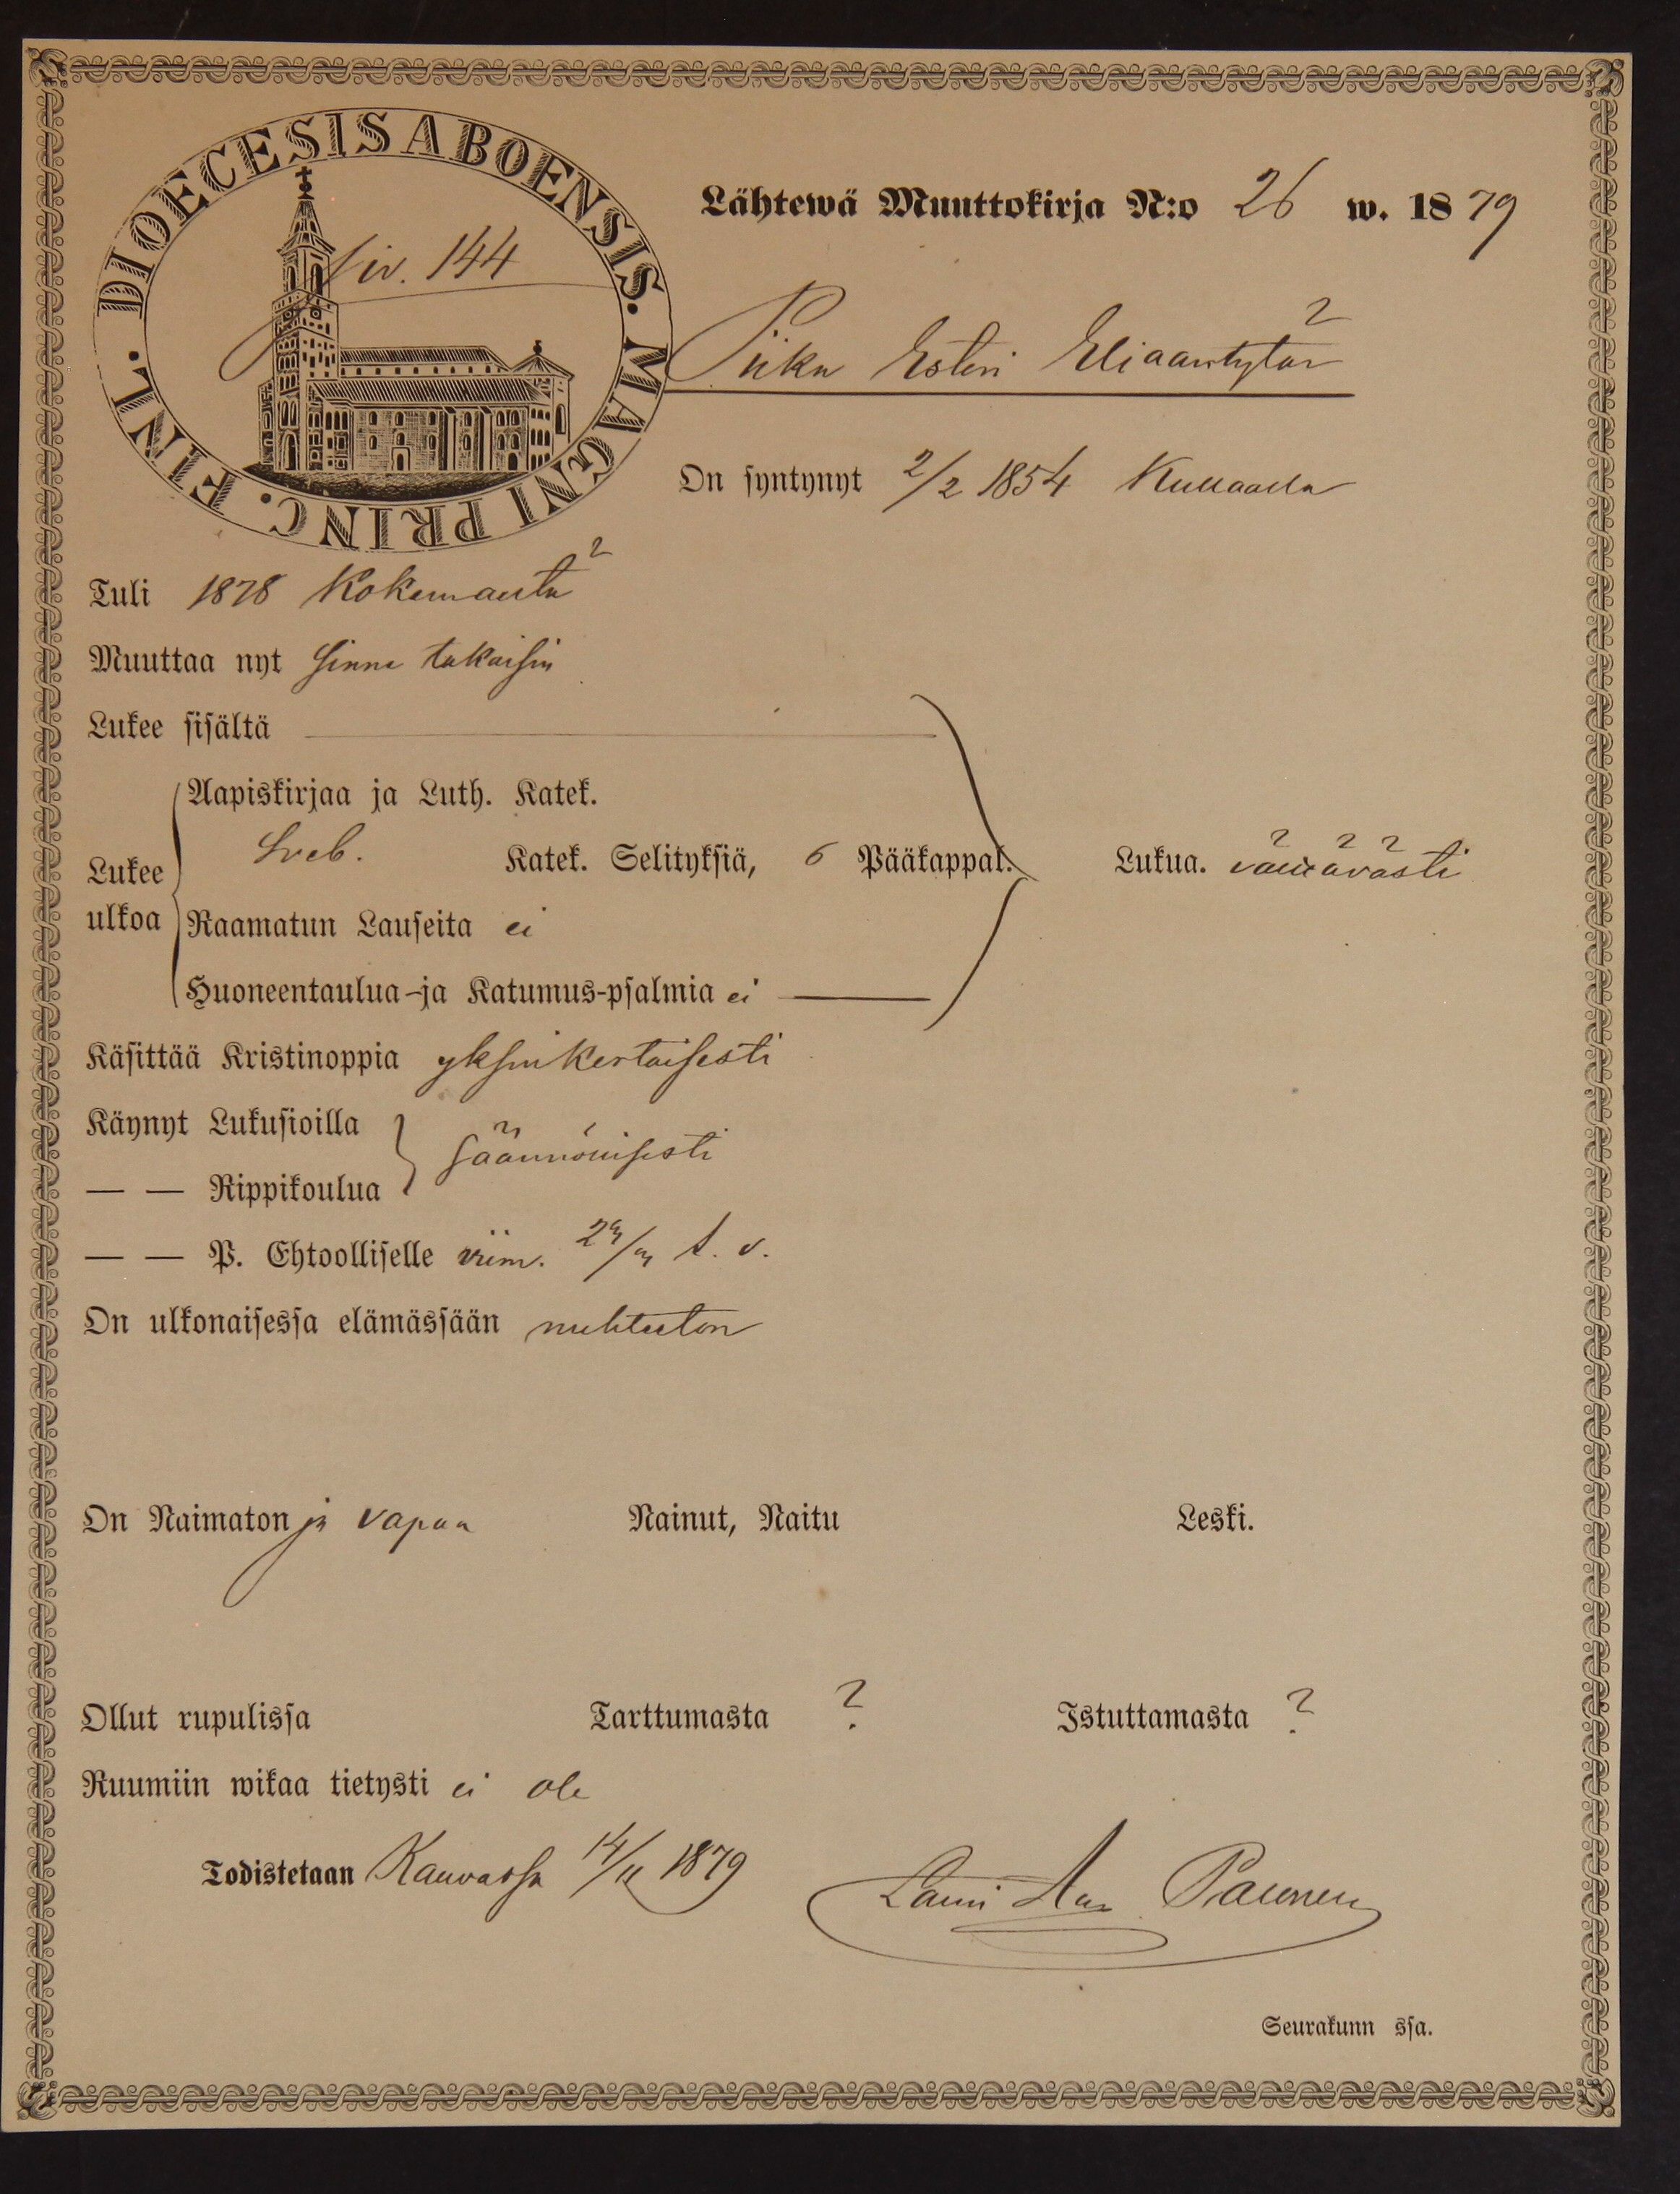 DIOECESIS ABOENSIS. MAGNI PRINC. FINL.
Siv. 144
Lähtewä Muuttokirja N:o 26 w. 1879
Piika Esteri Eliaantytär
On syntynyt 2/2 1854 Kullaalla
Tuli 1878 Kokemäeltä
Muuttaa nyt sinne takaisin
Lukee sisältä
Aapiskirjaa ja Luth. Katek.
Lukee ulkoa
Sveb. Katek. Selityksiä, 6 Pääkappal. Lukua. välttävästi
Raamatun Lauseita ei
Huoneentaulua-ja Katumus-psalmia ei
Käsittää Kristinoppia yksinkertaisesti
Käynyt Lukusioilla
säännöllisesti
— — Rippikoulua
— — P. Ehtoolliselle viim. t. v.
On ulkonaisessa elämässään nuhteeton
On Naimaton ja vapaa Nainut, Naitu Leski.
Ollut rupulissa Tarttumasta ? Istuttamasta ?
Ruumiin wikaa tietysti ei ole
Todistetaan Kauvatsa 14/11 1879
Lauri Paunu
Seurakunn ssa.